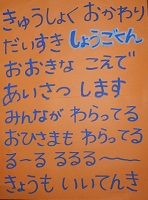 きゅうしょく おかわり
だいすき しょうごくん
おおきな こえで
あいさつ します
みんなが わらってる
おひさまも わらってる
る～る るるる～～
きょうも いいてんき